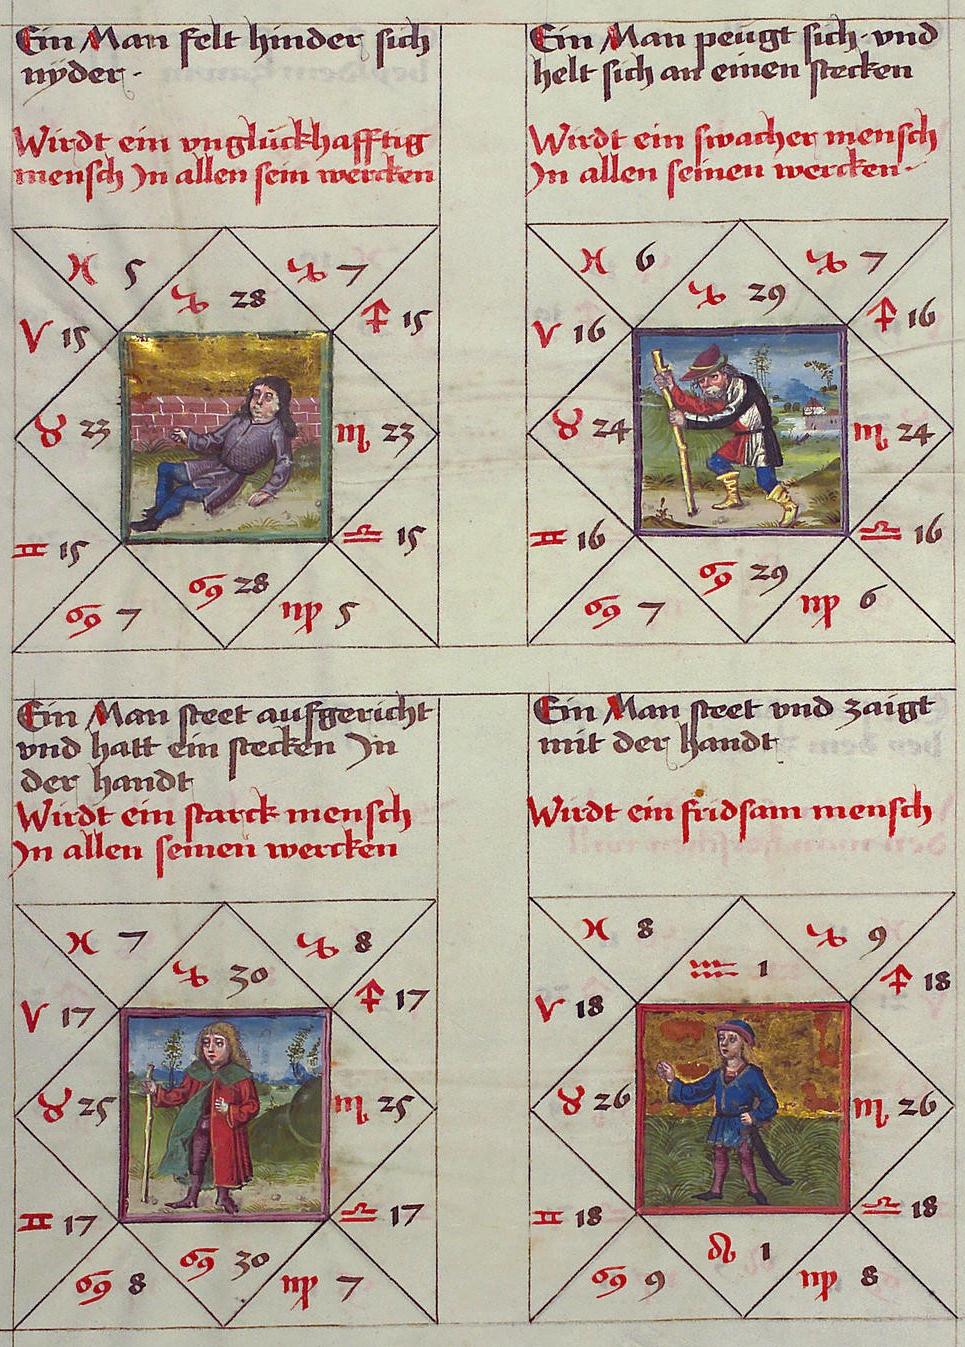 Ein Man felt hinder sich
nyder ·
Wirdt ein vnglückhafftig
mensch Jn allen sein wercken
♓ 5
♑ 7
♑ 28
♈ 15
♐ 15
♉ 23
♏ 23
♊ 15
♎ 15
♋ 28
♋ 7
♍ 5
Ein Man peugt sich · vnd
helt sich an einen stecken
Wirdt ein swacher mensch
Jn allen seinen wercken ·
♓ 6
♑ 7
♑ 29
♈ 16
♐ 16
♉ 24
♏ 24
♊ 16
♎ 16
♋ 29
♋ 7
♍ 6
Ein Man steet aufgericht
vnd hatt ein stecken Jn
der handt
Wirdt ein starck mensch
Jn allen seinen wercken
♓ 7
♑ 8
♑ 30
♈ 17
♐ 17
♉ 25
♏ 25
♊ 17
♎ 17
♋ 30
♋ 8
♍ 7
Ein Man steet vnd zaigt
mit der handt
Wirdt ein fridsam mensch
♓ 8
♑ 9
♒ 1
♈ 18
♐ 18
♉ 26
♏ 26
♊ 18
♎ 18
♌ 1
♋ 9
♍ 8